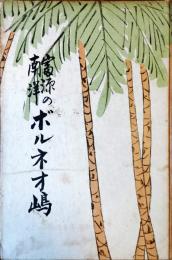 南洋
富源の
ボルネオ嶋